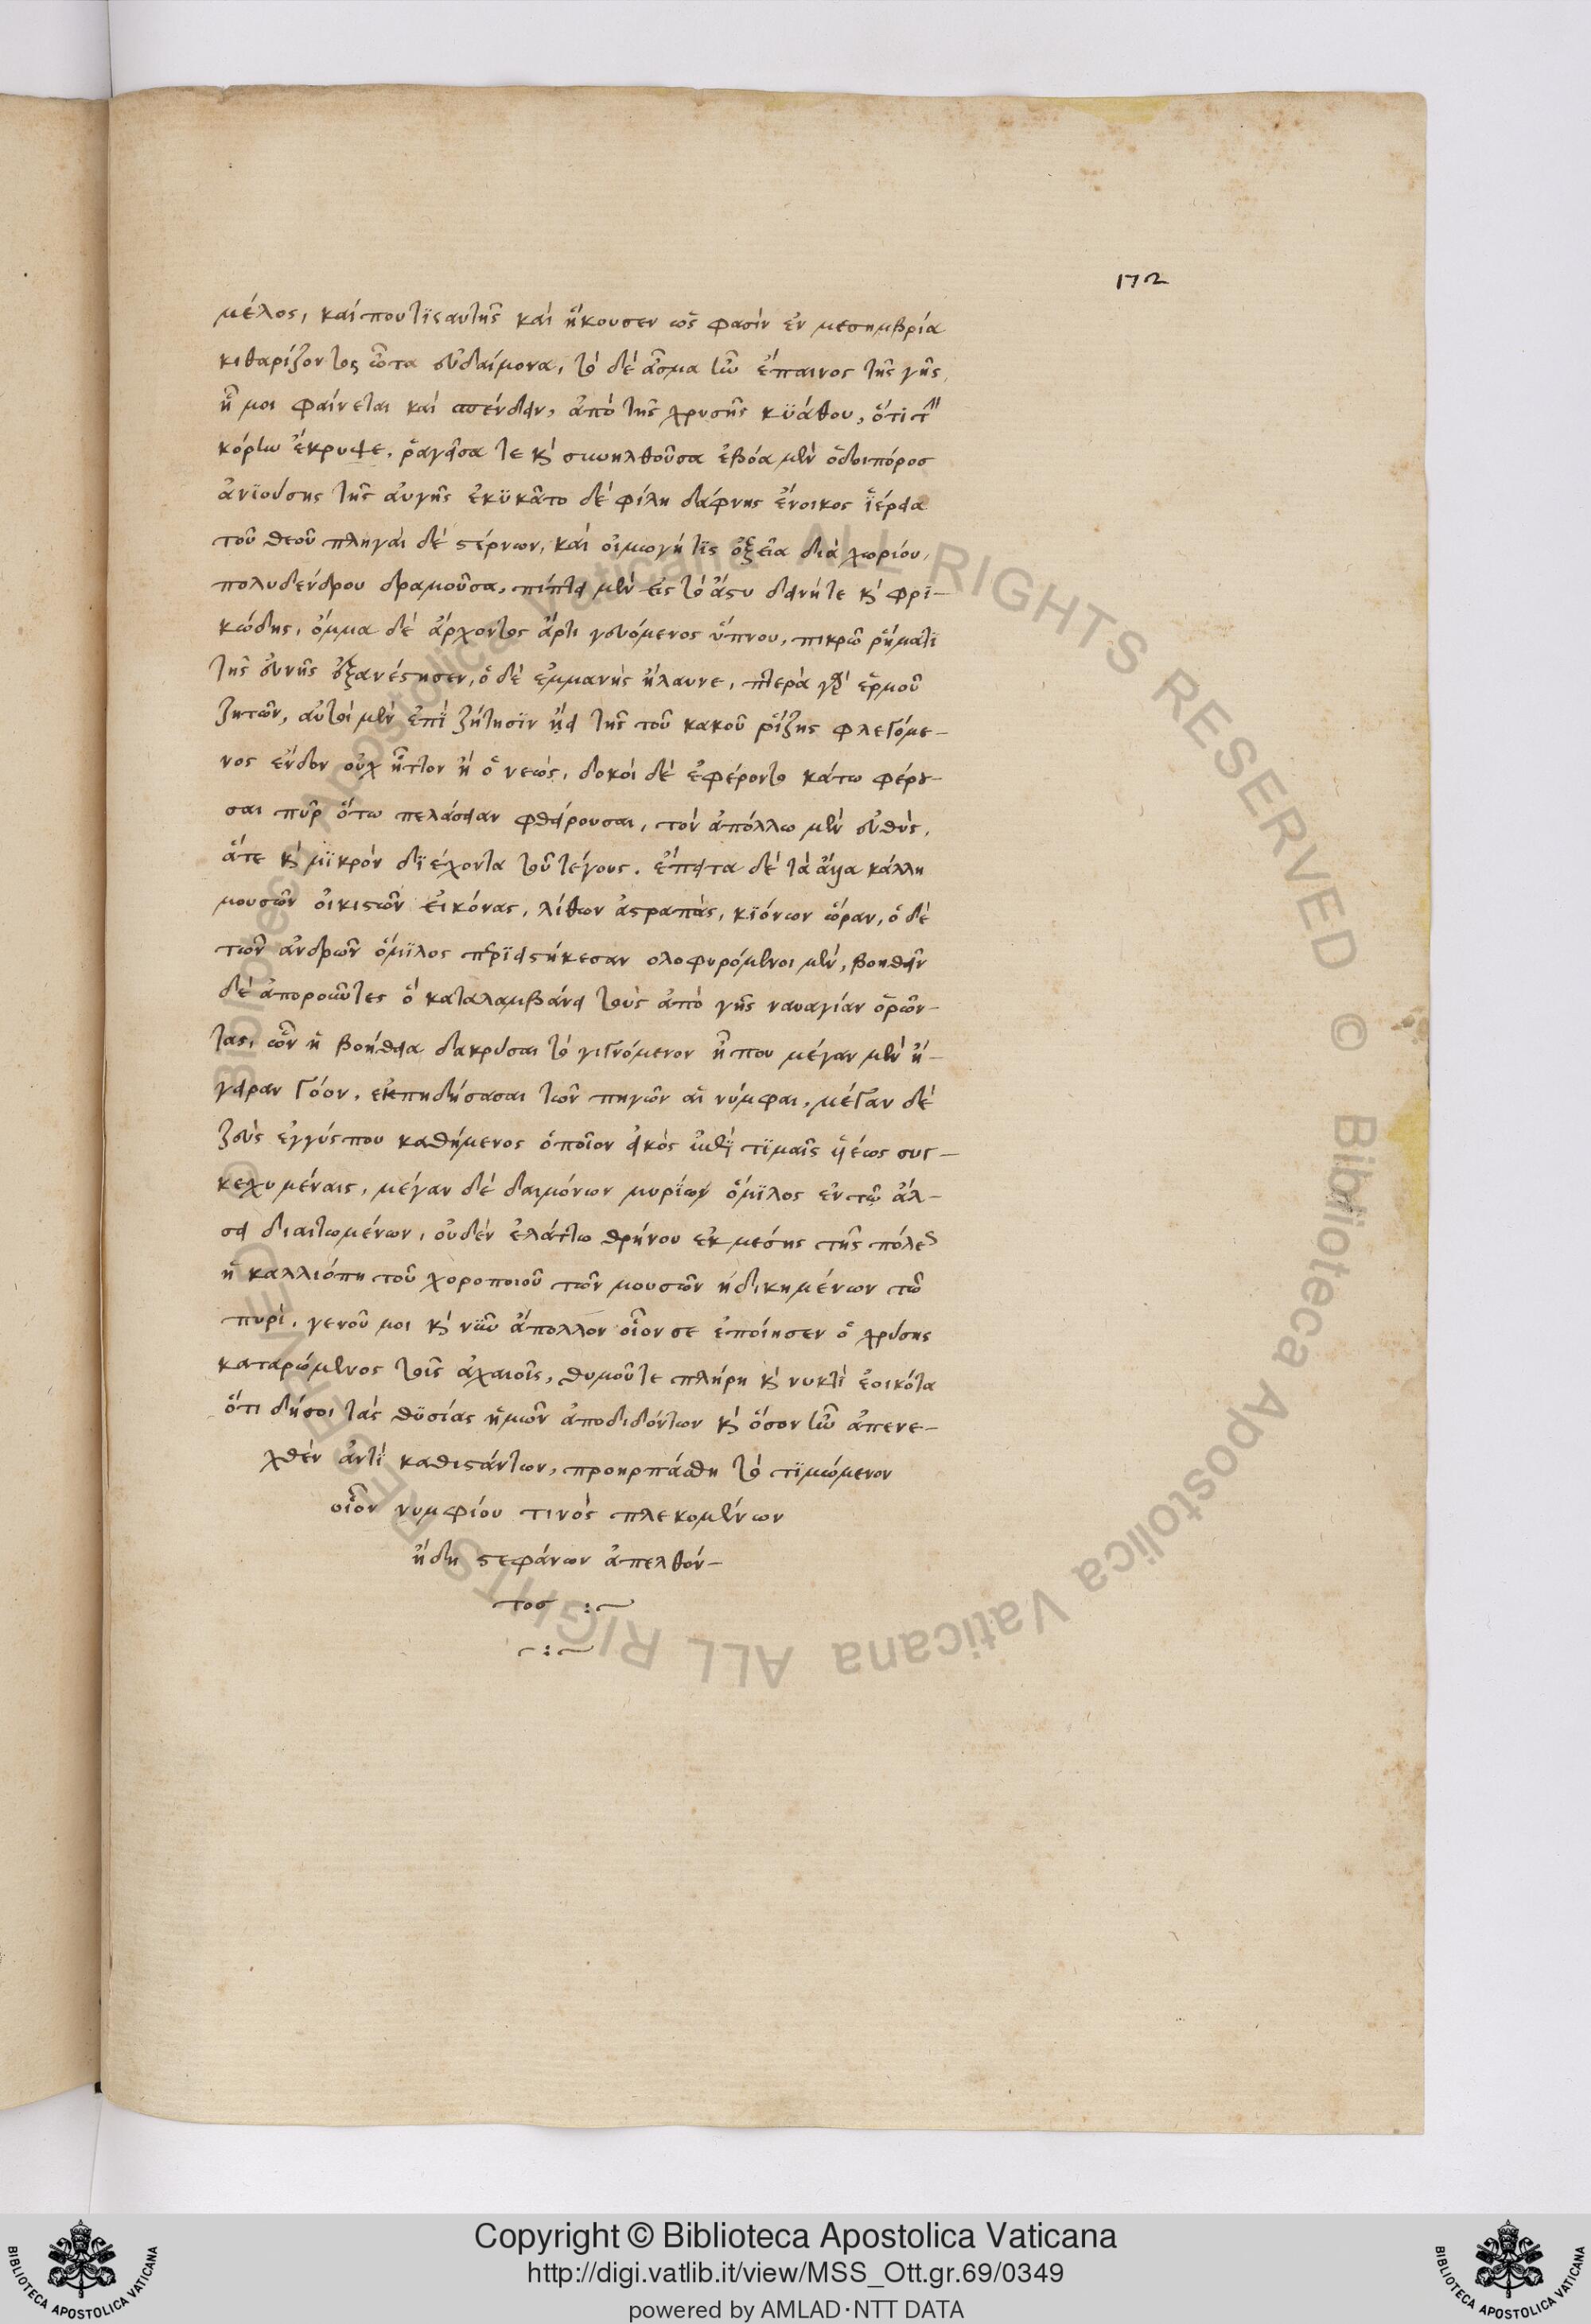 172
μέλος, καί που τῒς αυτῆς καὶ ἤκουσεν ὥς φασὶν ἐν μεσημβρία
κιθαρίζοντος ὦτα εὐδαίμονα, τὸ δὲ ἆσμα ἦν ἔπαινος τῆς γῆς,
ἥ μοι φαίνεται καὶ σπένδειν, ἀπὸ τῆς χρυσῆς κϋάθου, ὅτι τὴν
κόρην ἔκρυψε. ῥαγεῖσα τε καὶ συνηλθοῦσα ἐβόα μὲν ὁδοιπόροσ
ἀνϊούσης τῆς αὐγῆς ἐκϋκᾶτο δὲ φίλη δάφνης ἔνοικος ἱέρεια
τοῦ θεοῦ πληγαὶ δὲ στέρνων, καὶ οἰμωγή τῒς ὀξεῖα διὰ χωρίου,
πολυδένδρου δραμοῦσα, πίπτει μὲν εἰς τὸ ἄστυ δεινή τε καὶ φρι-
κώδης, ὄμμα δὲ ἄρχοντος ἄρτι γευόμενος ὕπνου, πικρῶ ῥήματϊ
τῆς εὐνῆς ἐξανέστησεν, ὁ δὲ ἐμμανὴς ἤλαυνε, πτερὰ γὰρ ἑρμοῦ
ζητῶν, αὐτοὶ μὲν ἐπῒ ζήτησϊν ἤει τῆς τοῦ κακοῦ ῥίζης φλεγόμε-
νος ἔνδον οὐχ ἧττον ἢ ὁ νεώς, δοκοὶ δὲ ἐφέροντο κάτω φέρου-
σαι πῦρ ὅτω πελάσειαν φθείρουσαι, τὸν ἀπόλλω μὲν εὐθὺς,
ἅτε καὶ μϊκρὸν δϊέχοντα τοῦ τέγους. ἔπειτα δὲ τὰ ἄλλα κάλλη
μουσῶν οἰκιστῶν εἰκόνας, λίθων ἀστραπὰς, κϊόνων ὥραν, ὁ δὲ
τῶν ἀνδρῶν ὅμϊλος περϊειστήκεσαν ολοφυρόμενοι μὲν, βοηθεῖν
δὲ ἀποροῦντες ὃ καταλαμβάνει τοὺς ἀπὸ γῆς ναυαγίαν ὁρῶν-
τας, ὧν ἡ βοήθεια δακρῦσαι τὸ γιγνόμενον ἦ που μέγαν μὲν ἤ-
γειραν γόον, ἐκπηδήσασαι τῶν πηγῶν αἱ νύμφαι, μέγαν δὲ
ζεὺς ἐγγύς που καθήμενος ὁποῖον εἰκὸς ἐπῒ τϊμαῖς υἱέως συγ-
κεχυμέναις, μέγαν δὲ δαιμόνων μυρίων ὅμϊλος ἐν τῷ ἄλ-
σει διαιτωμένων, οὐδὲν ἐλάττω θρήνου ἐκ μέσης τῆς πόλεως
ἡ καλλιόπη τοῦ χοροποιοῦ τῶν μουσῶν ἠδικημένων τῶ
πυρὶ, γενοῦ μοι καὶ νῦν ἄπολλον οἷον σε ἐποίησεν ὁ χρύσης
καταρώμενος τοῖς ἀχαιοῖς, θυμοῦ τε πλήρη καὶ νυκτὶ ἐοικότα
ὅτι δή σοι τὰς θϋσίας ἡμῶν ἀποδιδόντων καὶ ὅσον ἦν ἀπενε-
χθὲν ἀντῒ καθιστάντων, προηρπάσθη τὸ τϊμώμενον
οἷον νυμφίου τινὸς πλεκομένων
ἤδη στεφάνων ἀπελθόν-
τοσ :~
~:~
Copyright © Biblioteca Apostolica Vaticana
http://digi.vatlib.it/view/MSS_Ott.gr.69/0349
powered by AMLAD·NTT DATA
BIBLIOTECA APOSTOLICA VATICANA
BIBLIOTECA APOSTOLICA VATICANA
© Biblioteca Apostolica Vaticana ALL RIGHTS RESERVED © Biblioteca Apostolica Vaticana ALL RIGHTS RESERVED